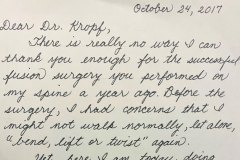 October 24, 2017
Dear Dr. Kropf,
There is really no way I can
thank you enough for the successful
fusion surgery you performed on
my spine a year ago. Before the
surgery, I had concerns that I
might not walk normally, let alone,
"bend, lift or twist" again.
Yet, here I am today, doing